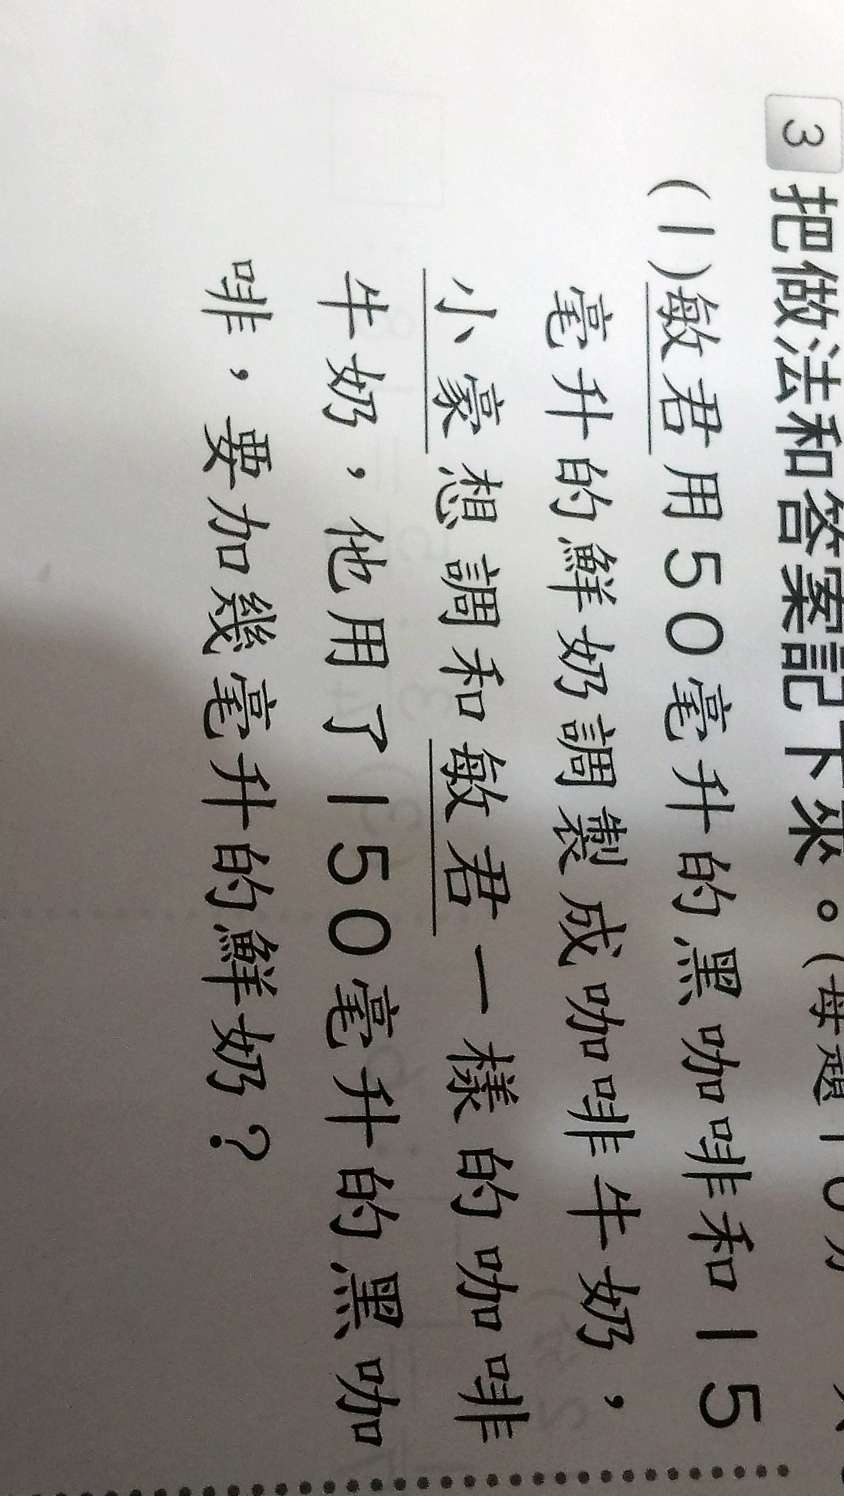 3 把做法和答案記下來。(每題10分
(1)敏君用50毫升的黑咖啡和15
毫升的鮮奶調製成咖啡牛奶，
小豪想調和敏君一樣的咖啡
牛奶，他用了150毫升的黑咖
啡，要加幾毫升的鮮奶？